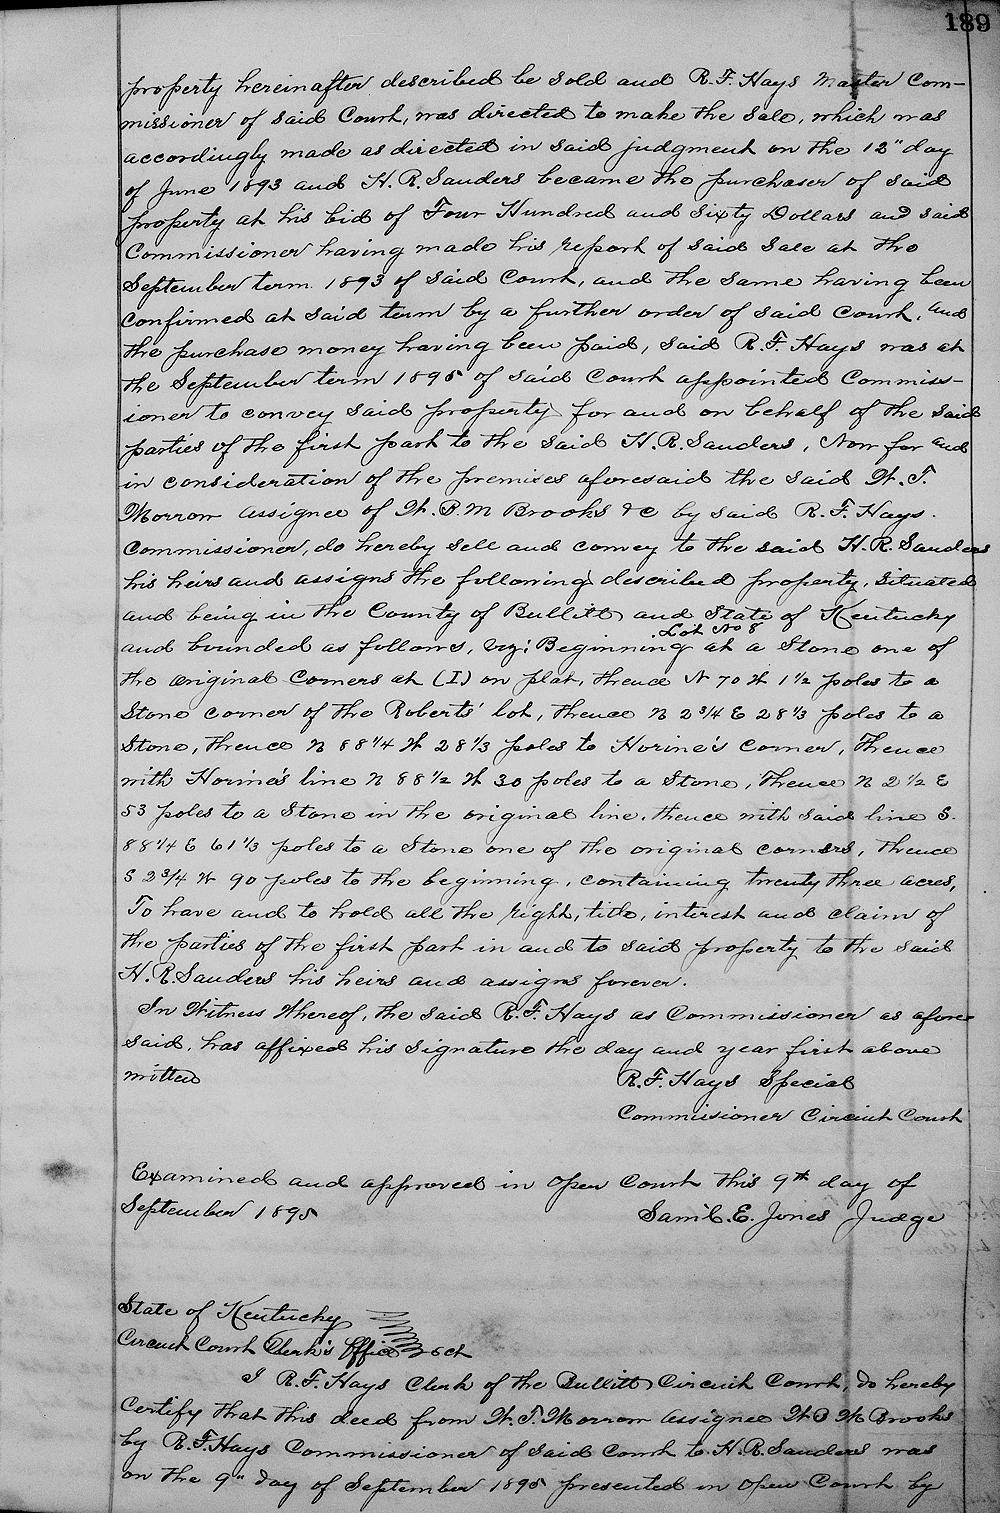 189
property hereinafter described be sold and R. F. Hays Master Com-
missioner of said Court, was directed to make the sale, which was
accordingly made as directed in said judgment on the 12" day
of June 1893 and H. R. Sanders became the purchaser of said
property at his bid of Four Hundred and sixty Dollars and said
Commissioner having made his report of said sale at the
September term 1893 of said Court, and the same having been
confirmed at said term by a further order of said Court, and
the purchase money having been paid, said R. F. Hays was at
the September term 1895 of said Court appointed Commiss-
ioner to convey said property for and on behalf of the said
parties of the first part to the said H. R. Sanders, Now for and
in consideration of the premises aforesaid the said W. T.
Morrow assignee of W. B. M Brooks &c by said R. F. Hays.
Commissioner, do hereby sell and convey to the said H. R. Sanders
his heirs and assigns the following described property, situated
and being in the County of Bullitt and State of Kentucky
Lot No 8
and bounded as follows, viz: Beginning at a Stone one of
the original corners at (I) on plat, thence N 70 W 1 1/2 poles to a
Stone corner of the Roberts' lot, thence N 2 3/4 E 28 1/3 poles to a
Stone, thence N 88 1/4 W 28 1/3 poles to Horine's corner, thence
with Horine's line N 88 1/2 W 30 poles to a Stone, thence N 2 1/2 E
53 poles to a Stone in the original line, thence with said line S.
88 1/4 E 61 1/3 poles to a Stone one of the original corners, thence
S 2 3/4 W 90 poles to the beginning, containing twenty three acres,
To have and to hold all the right, title, interest and claim of
the parties of the first part in and to said property to the said
H. R. Sanders his heirs and assigns forever.
In Witness Whereof, the said R. F. Hays as Commissioner as afore
said, has affixed his signature the day and year first above
written
R. F. Hays Special
Commissioner Circuit Court
Examined and approved in open Court this 9th day of
September 1895
Saml. E. Jones Judge
State of Kentucky
Circuit Court Clerk's Office Sct
I R. F. Hays Clerk of the Bullitt Circuit Court, do hereby
certify that this deed from W. T. Morrow assignee W B M Brooks
by R. F. Hays Commissioner of said Court to H. R. Sanders was
on the 9" day of September 1895 presented in open Court by